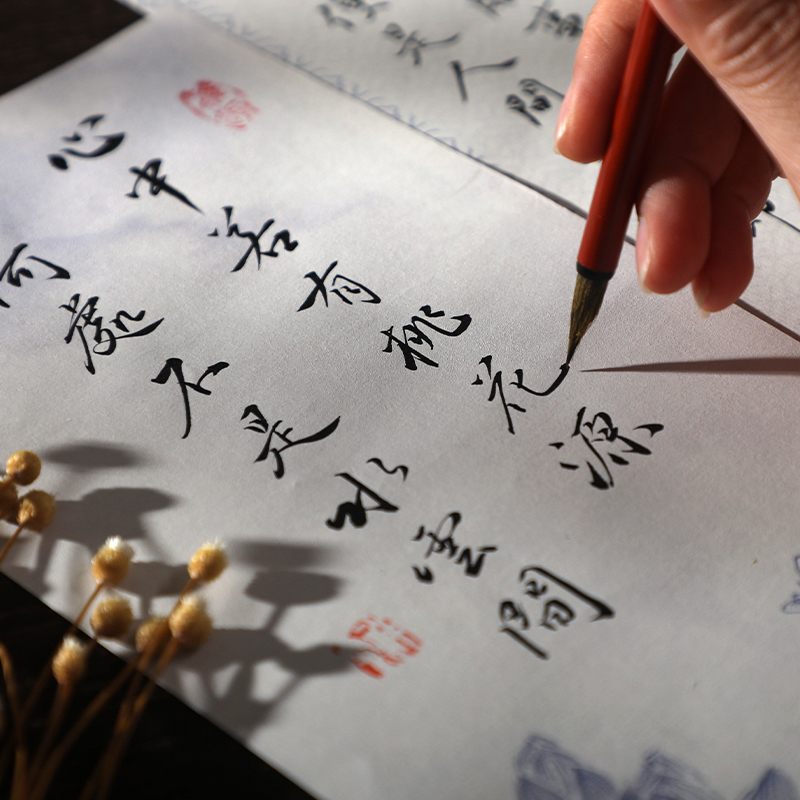 事
便是人間
心中若有桃花源
何處不是水雲間